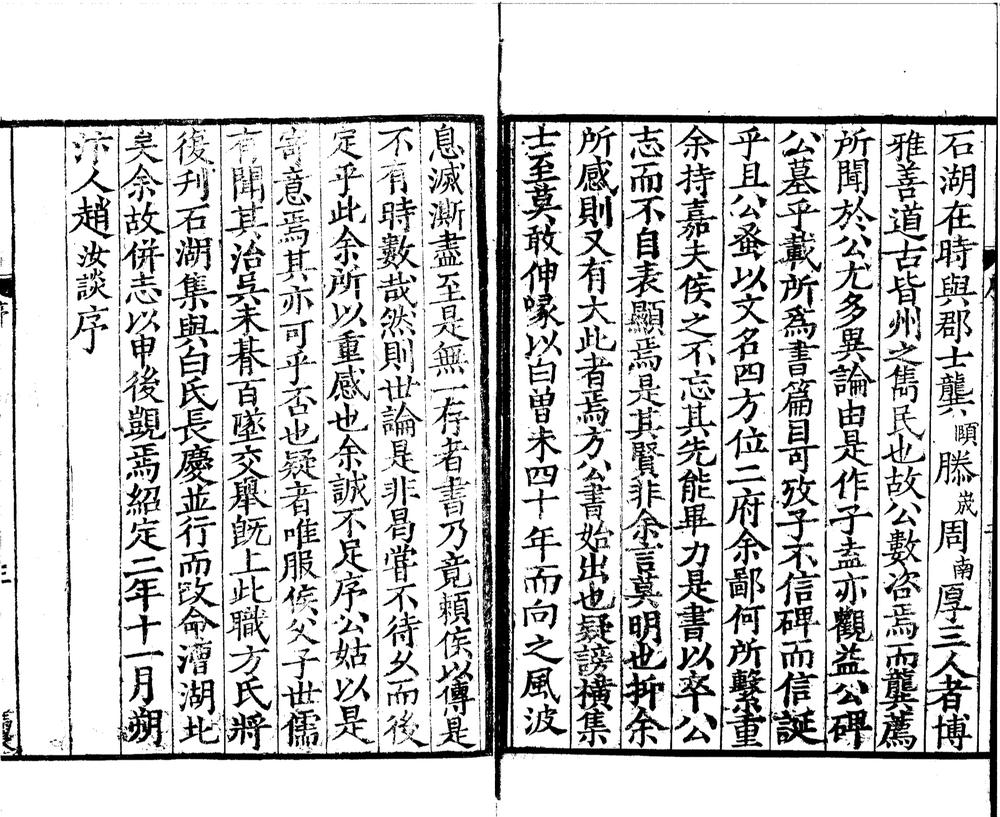 石湖在時與郡士龔頤滕宬周南厚三人者博
雅善道古皆州之雋民也故公數咨焉而龔薦
所聞於公尤多異論由是作子盍亦觀益公碑
公墓乎載所爲書篇目可攷子不信碑而信誕
乎且公蚤以文名四方位二府余鄙何所繫重
余持嘉夫侯之不忘其先能畢力是書以卒公
志而不自表顯焉是其賢非余言莫明也抑余
所感則又有大此者焉方公書始出也疑謗橫集
士至莫敢伸喙以白曾未四十年而向之風波
息滅澌盡至是無一存者書乃竟賴侯以傳是
不有時數哉然則世論是非曷嘗不待久而後
定乎此余所以重感也余誠不足序公姑以是
寄意焉其亦可乎否也疑者唯服侯父子世儒
有聞其治吳未朞百墜交舉旣上此職方氏將
復刋石湖集與白氏長慶並行而改命漕湖北
矣余故併志以申後覬焉紹定二年十一月朔
汴人趙汝談序
序